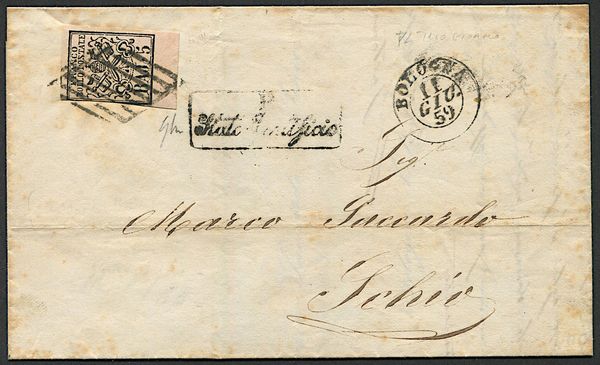 FRANCO
BOLLO POSTALE
BAJ. 5
Stato Pontificio
BOLOGNA
11
GIU
59
Sig.
Marco Saccardo
Schio